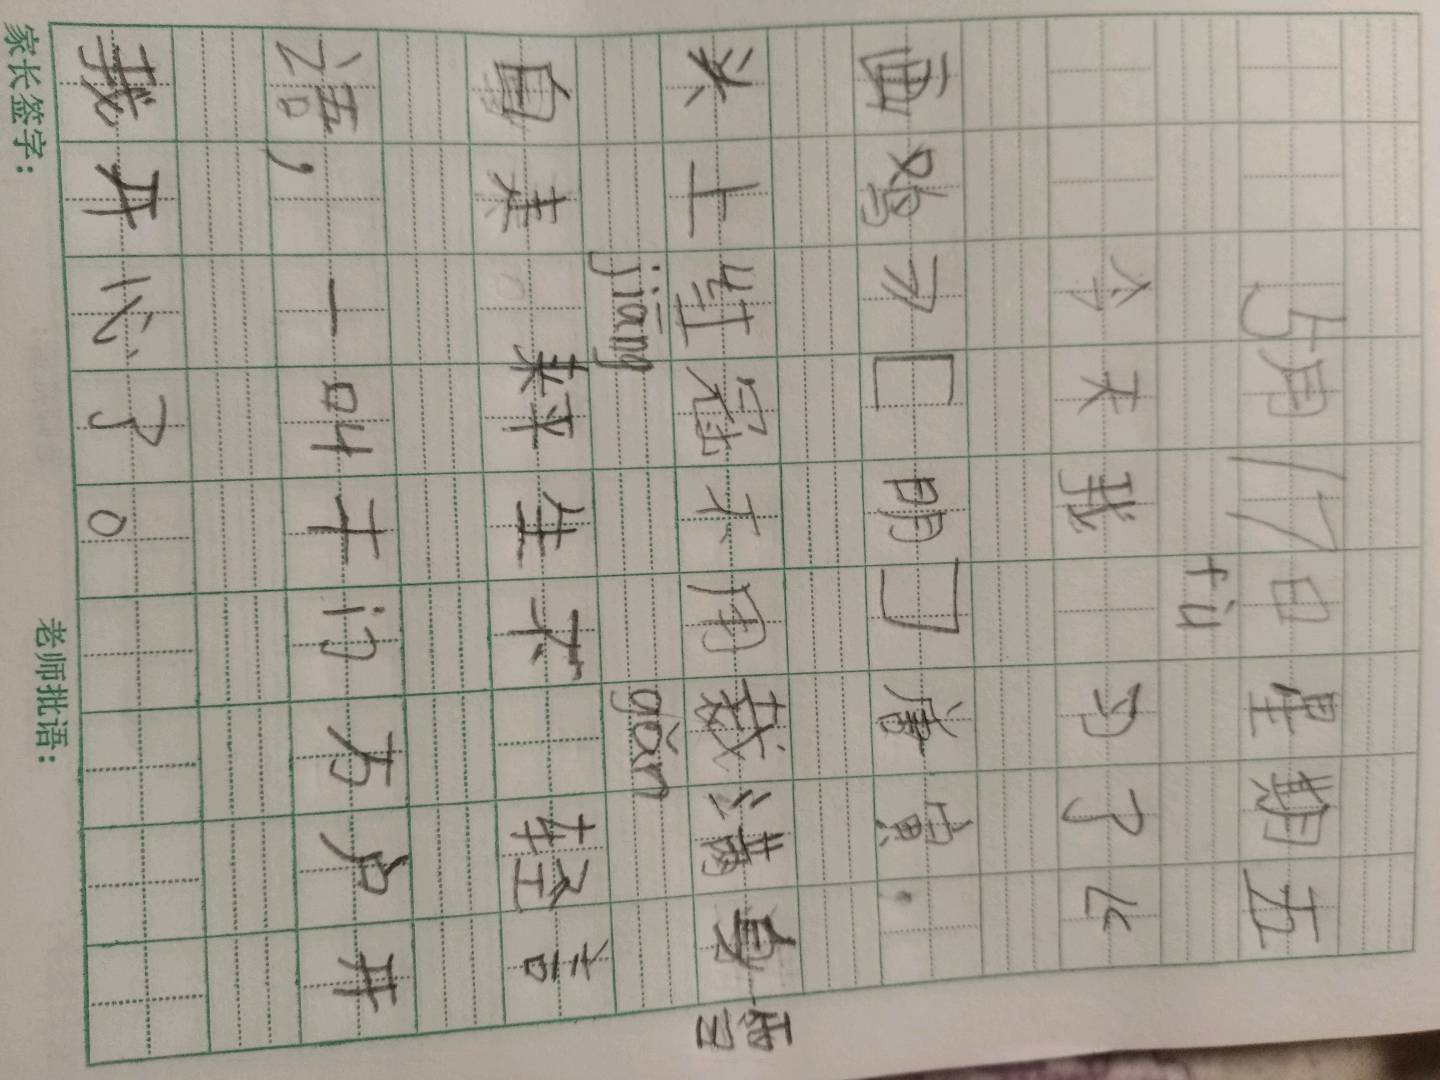 5月17日星期五
fù
今天我 习了《
画鸡》[明]唐寅.
头上红冠不用裁满身雪
jiāng gǎn
白走 来平生不 轻言
语,一叫千门万户开
我开心了。
家长签字: 老师批语: